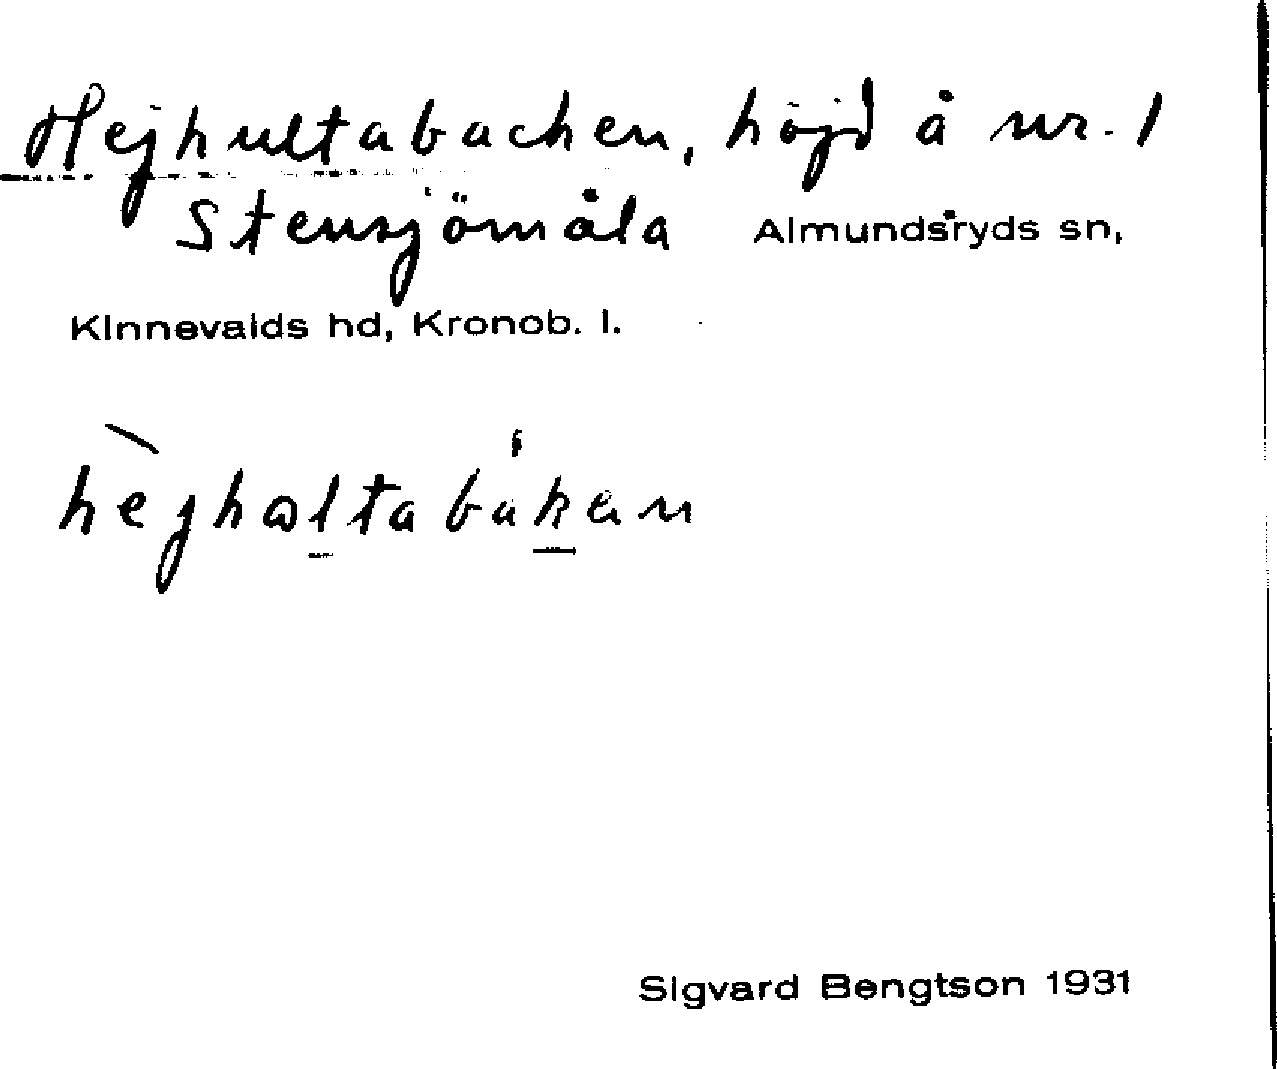 Hejhultabacken, höjd å nr. 1
Stensjömåla Almundsryds sn,
Kinnevalds hd, Kronob. l.
hèjhωltabákan
Sigvard Bengtson 1931